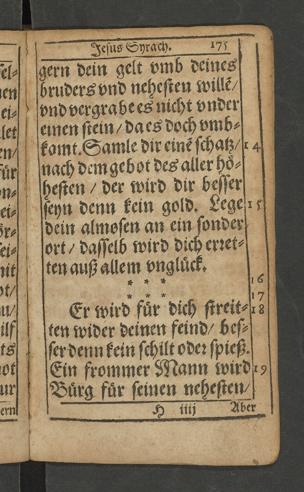 Jesus Syrach. 175
gern dein gelt vmb deines
bruders vnd nehesten willē/
vnd vergrabe es nicht vnder
einen stein / da es doch vmb-
komt. Samle dir einē schatz/ 14
nach dem gebot des aller hö-
hesten / der wird dir besser
seyn denn kein gold. Lege 15
dein almosen an ein sonder
ort / dasselb wird dich erret-
ten auß allem vnglück.
* * * 16
* * * 17
Er wird für dich streit- 18
ten wider deinen feind/ bes-
ser denn kein schilt oder spieß.
Ein frommer Mann wird 19
Bürg für seinen nehesten/
H iiij Aber